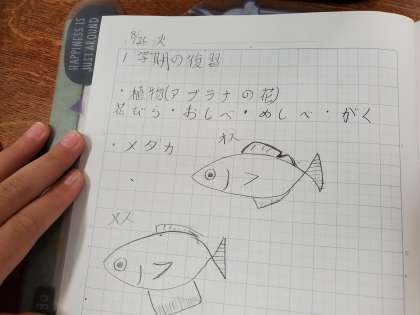 HAPPINESS IS
JUST AROUND
8/26 火
1学期の復習
・植物(アブラナの花)
花びら・おしべ・めしべ・がく
・メダカ
オス
メス